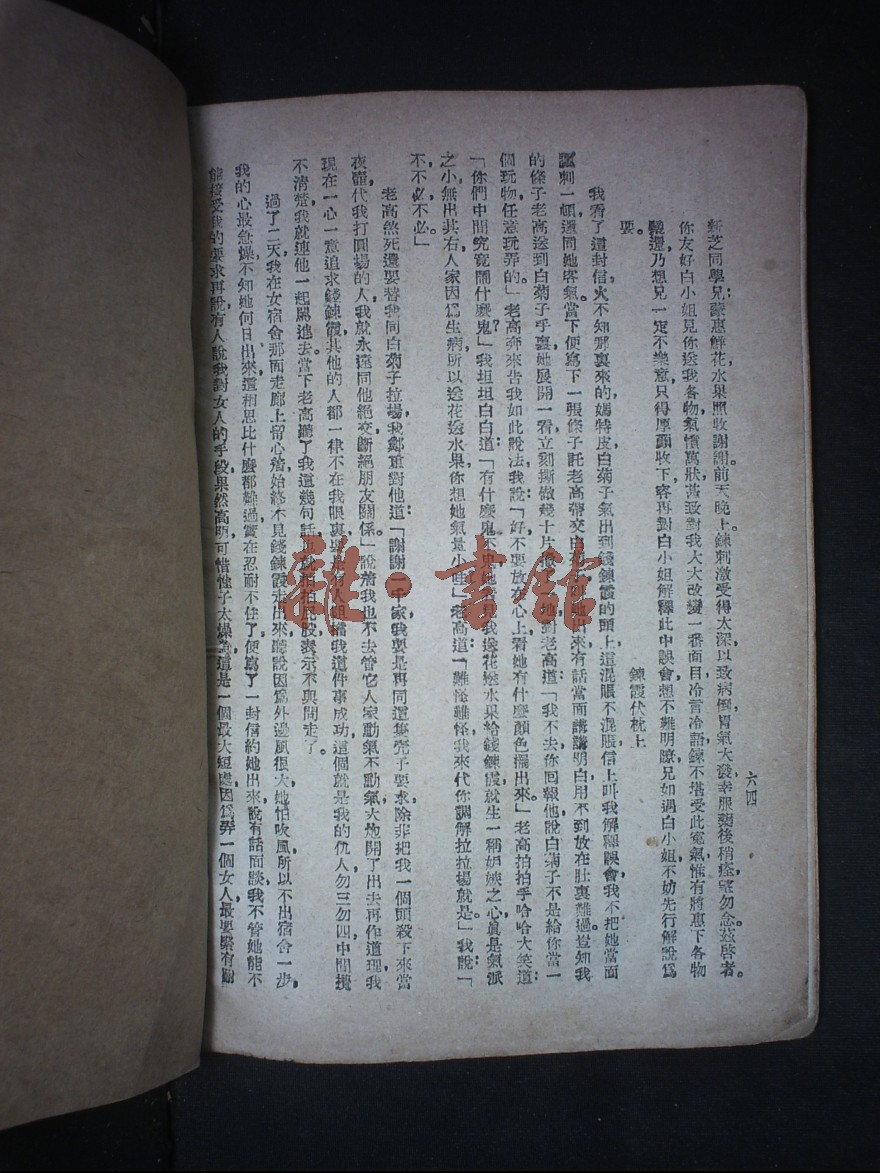 六四
新芝同學兄：蒙惠鮮花水果照收謝謝。前天晚上鍊刺激受得太深以致病倒胃氣大發幸服藥後稍痊望勿念茲啓者。
你友好白小姐見你送我各物氣憤萬狀茲致對我大大改變一番面目冷言冷語鍊不堪受此寃氣惟有將惠下各物
璧還乃想兄一定不樂意只得厚顏收下容再對白小姐解釋此中誤會想不難明瞭兄如遇白小姐不妨先行解說爲
要。
鍊霞伏枕上
我看了這封信，火不知那裏來的媽特皮白菊子氣出到錢鍊霞的頭上這混賬不混賬信上叫我解釋誤會我不把她當面
諷刺一頓還同她客氣當下便寫下一張條子託老高帶交白菊子叫她出來有話當面講講明白用不到放在肚裏難過。豈知我
的條子老高送到白菊子手裏她展開一看立刻撕做幾十片，她對老高道：「我不去你回報他說白菊子不是給你當一
個玩物任意玩弄的。」老高奔來告我如此說法，我說：「好，不要放在心上看她有什麼顏色擺出來」老高拍拍手哈哈大笑道：
「你們中間究竟鬧什麼鬼？」我坦坦白白道：「有什麼鬼不鬼她看見我送花送水果給錢鍊霞就生一種妒嫉之心眞是氣派
之小無出其右人家因爲生病所以送花送水果你想她氣量小哇」老高道：「難怪難怪，我來代你調解拉拉場就是。」我說：「
不，不必，不必。」
老高煞死還要替我同白菊子拉場，我鄭重對他道：「謝謝一千家，我要是再同這隻壳子要求，除非把我一個頭殺下來，當
夜壺，代我打圓場的人，我就永遠同他絕交斷絕朋友關係」說着我也不去管它人家動氣不動氣大炮開了出去再作道理，我
現在一心一意追求錢鍊霞其他的人都一律不在我眼裏要是有人阻擋我這件事成功，這個就是我的仇人勿三勿四中間攪
不清楚，我就連他一起罵進去當下老高聽了我這幾句話也就拍拍屁股表示不與聞走了。
過了二天我在女宿舍那面走廊上留心着始終不見錢鍊霞走出來聽說因爲外邊風很大她怕吹風所以不出宿舍一步，
我的心最急燥不知她何日出來這相思比什麼都難過實在忍耐不住了便寫了一封信約她出來說有話面談我不管她能不
能接受我的要求再說，有人說我對女人的手段果然高明可惜性子太燥，這是一個最大短處因爲弄一個女人最要緊有耐
雜·書館